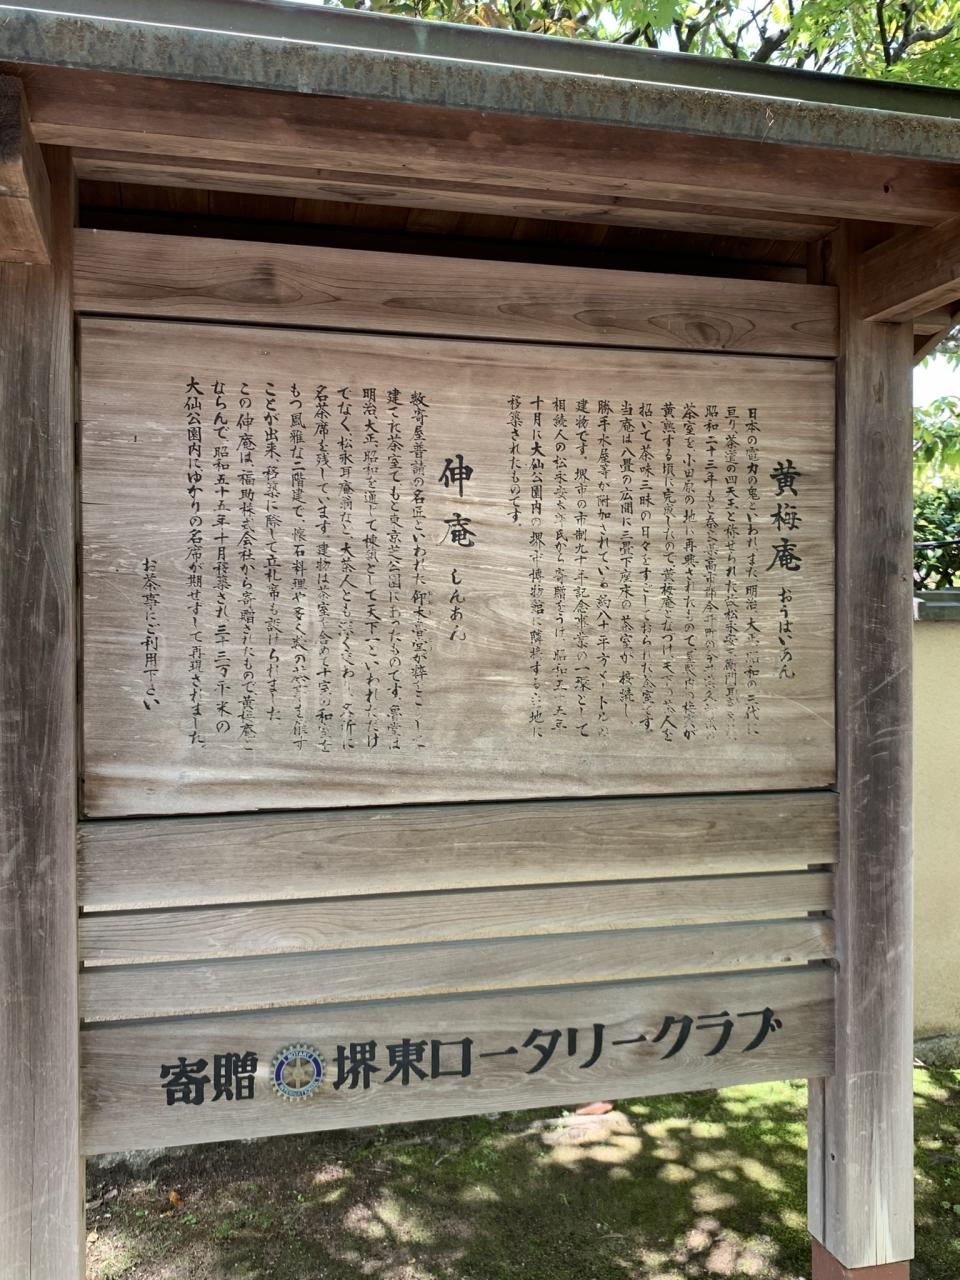 黄梅庵 おうばいあん
日本の電力の鬼といわれまた、明治、大正、昭和の三代に
亘り茶道の四天王と称せられた故松永安左衛門耳庵
昭和二十三年もと奈良県高市郡今井町の
茶室を小田原の地に再興されたもので
黄熟する頃に完成したので、黄梅庵となづけ天下の茶人を
招いて茶味三昧の日々をすごしておられた茶室です。
当庵は八畳の広間に三畳下座床の茶室が接続し、
勝手水屋等が附加されている約八十平方メートルの
建物です。堺市の市制九十年記念事業の一環として
相続人の松永安太郎氏から寄贈をうけ、昭和五十五年
十月に大仙公園内の堺市博物館に隣接する此地に
移築されたものです。
伸庵 しんあん
数寄屋普請の名匠といわれた仰木魯堂が粋をこらして
建てた茶室でもと東京芝公園にあったものです。魯堂は
明治、大正、昭和を通じて棟梁として天下一といわれただけ
でなく、松永耳庵翁など、大茶人とも
名茶席を残しています。建物は茶室を含めて十室の和室を
もつ風雅な二階建で、懐石料理や多人数の
ことが出来、移築に際して立礼席も設けられました。
この伸庵は福助株式会社から寄贈されたもので、黄梅庵と
ならんで、昭和五十五年十月移築され
大仙公園内にゆかりの名席が期せずして再現されました。
お茶事にご利用下さい
寄贈 堺東ロータリークラブ
ROTARY INTERNATIONAL